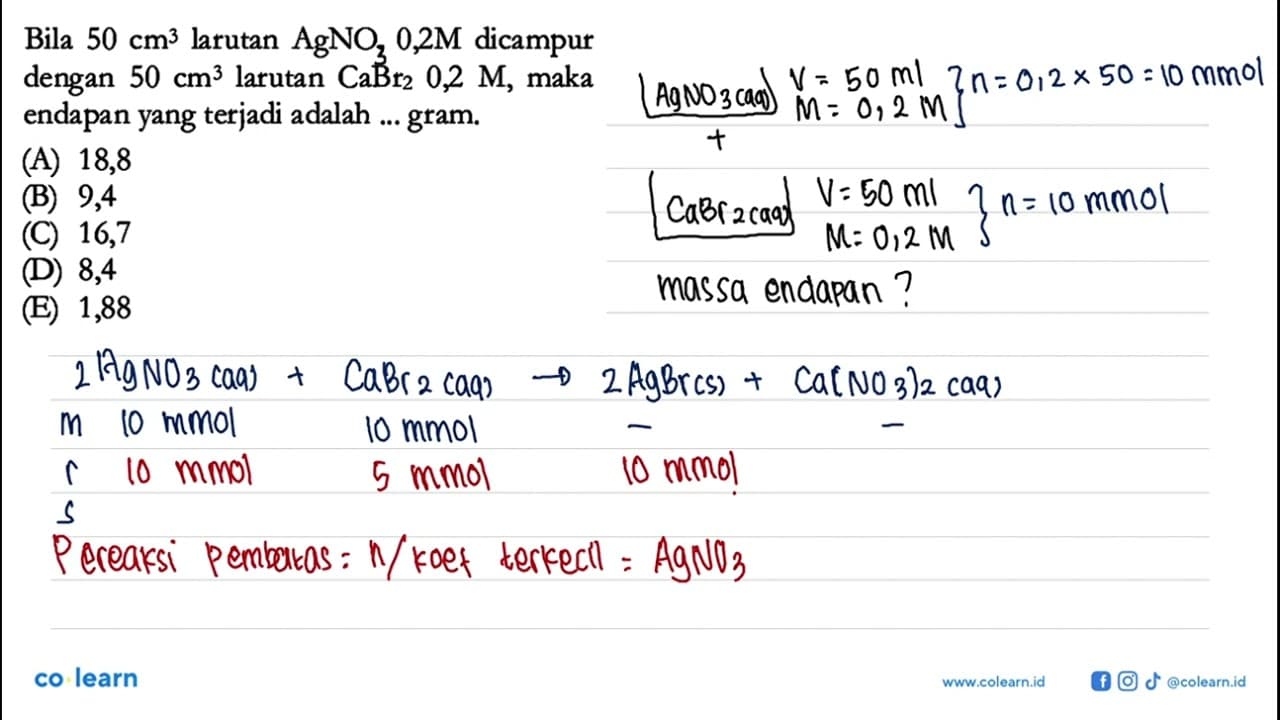 Bila 50 cm³ larutan AgNO₃ 0,2M dicampur
dengan 50 cm³ larutan CaBr₂ 0,2 M, maka
endapan yang terjadi adalah ... gram.
(A) 18,8
(B) 9,4
(C) 16,7
(D) 8,4
(E) 1,88
AgNO3 (aq) V = 50 ml
M = 0,2 M } n = 0,2 x 50 = 10 mmol
+
CaBr2 (aq) V = 50 ml
M = 0,2 M } n = 10 mmol
massa endapan ?
2 AgNO3 (aq) + CaBr2 (aq) → 2 AgBr (s) + Ca(NO3)2 (aq)
m 10 mmol 10 mmol - -
r 10 mmol 5 mmol 10 mmol
s
Pereaksi pembatas = n/koef terkecil = AgNO3
co learn
www.colearn.id
@colearn.id